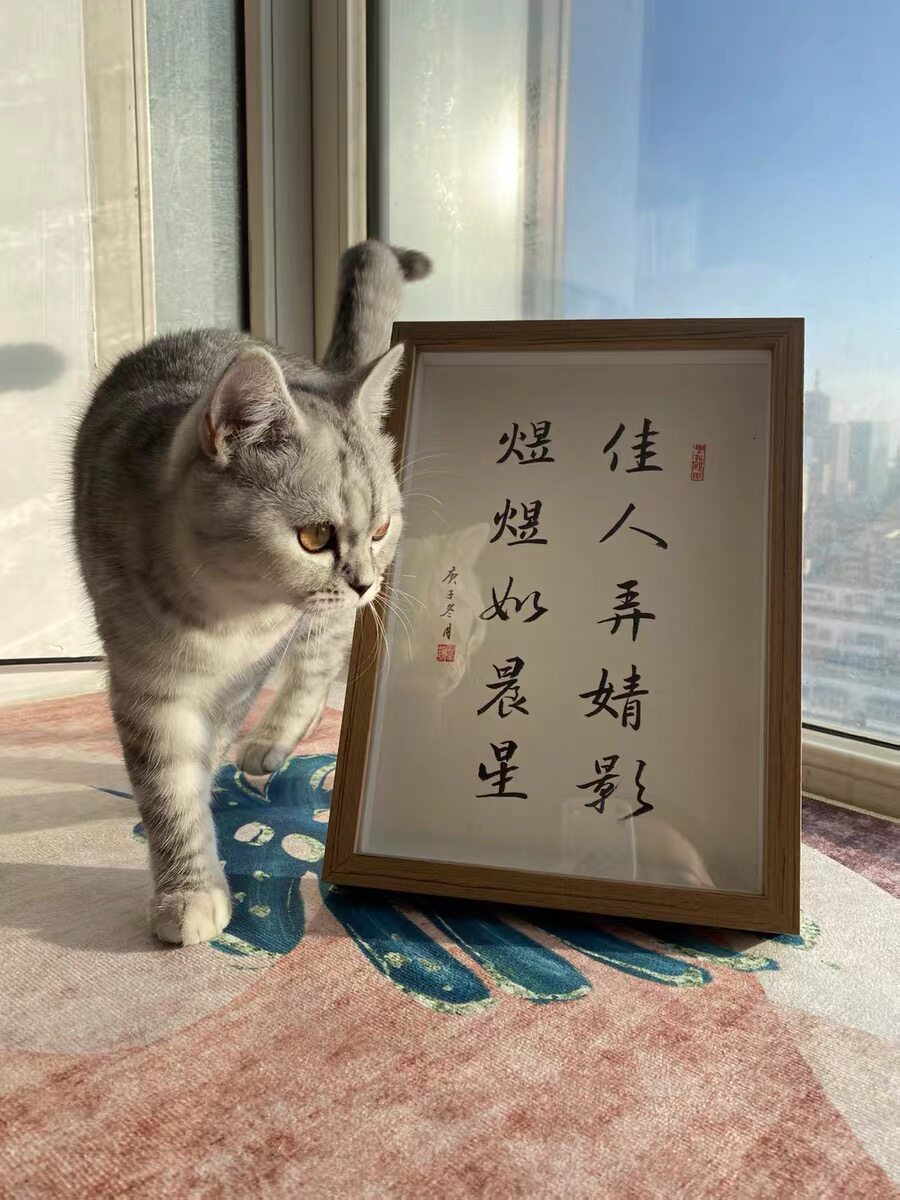 佳人弄婧影
煜煜如晨星
庚子冬月